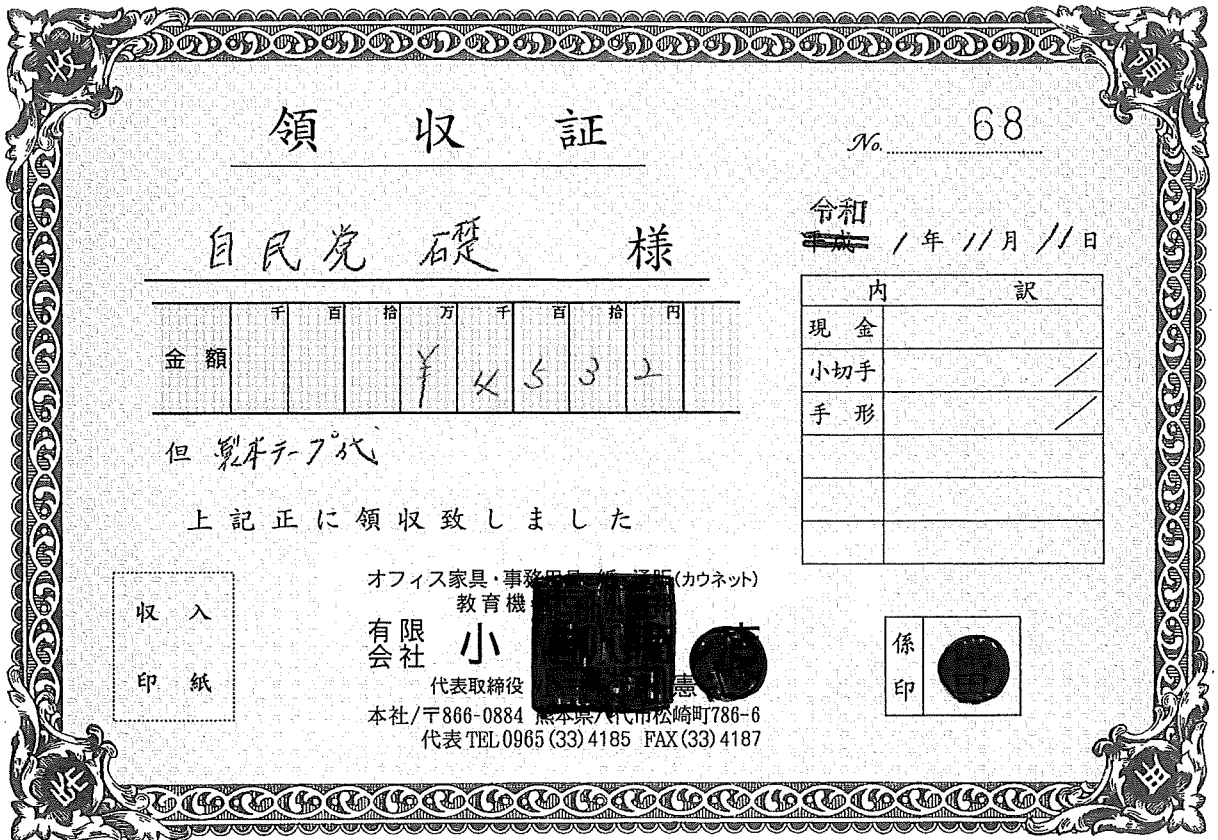 領収証
No. 68
自民党 礎 様
令和
平成 1年11月11日
千 百 拾 万 千 百 拾 円
金額 ¥4532
但 製本テープ代
上記正に領収致しました
内訳
現金
小切手
手形
収入
印紙
オフィス家具・事務用品 (カウネット)
教育機
有限会社 小
代表取締役 憲
本社/〒866-0884 熊本県八代市松崎町786-6
代表 TEL 0965(33)4185 FAX(33)4187
係印